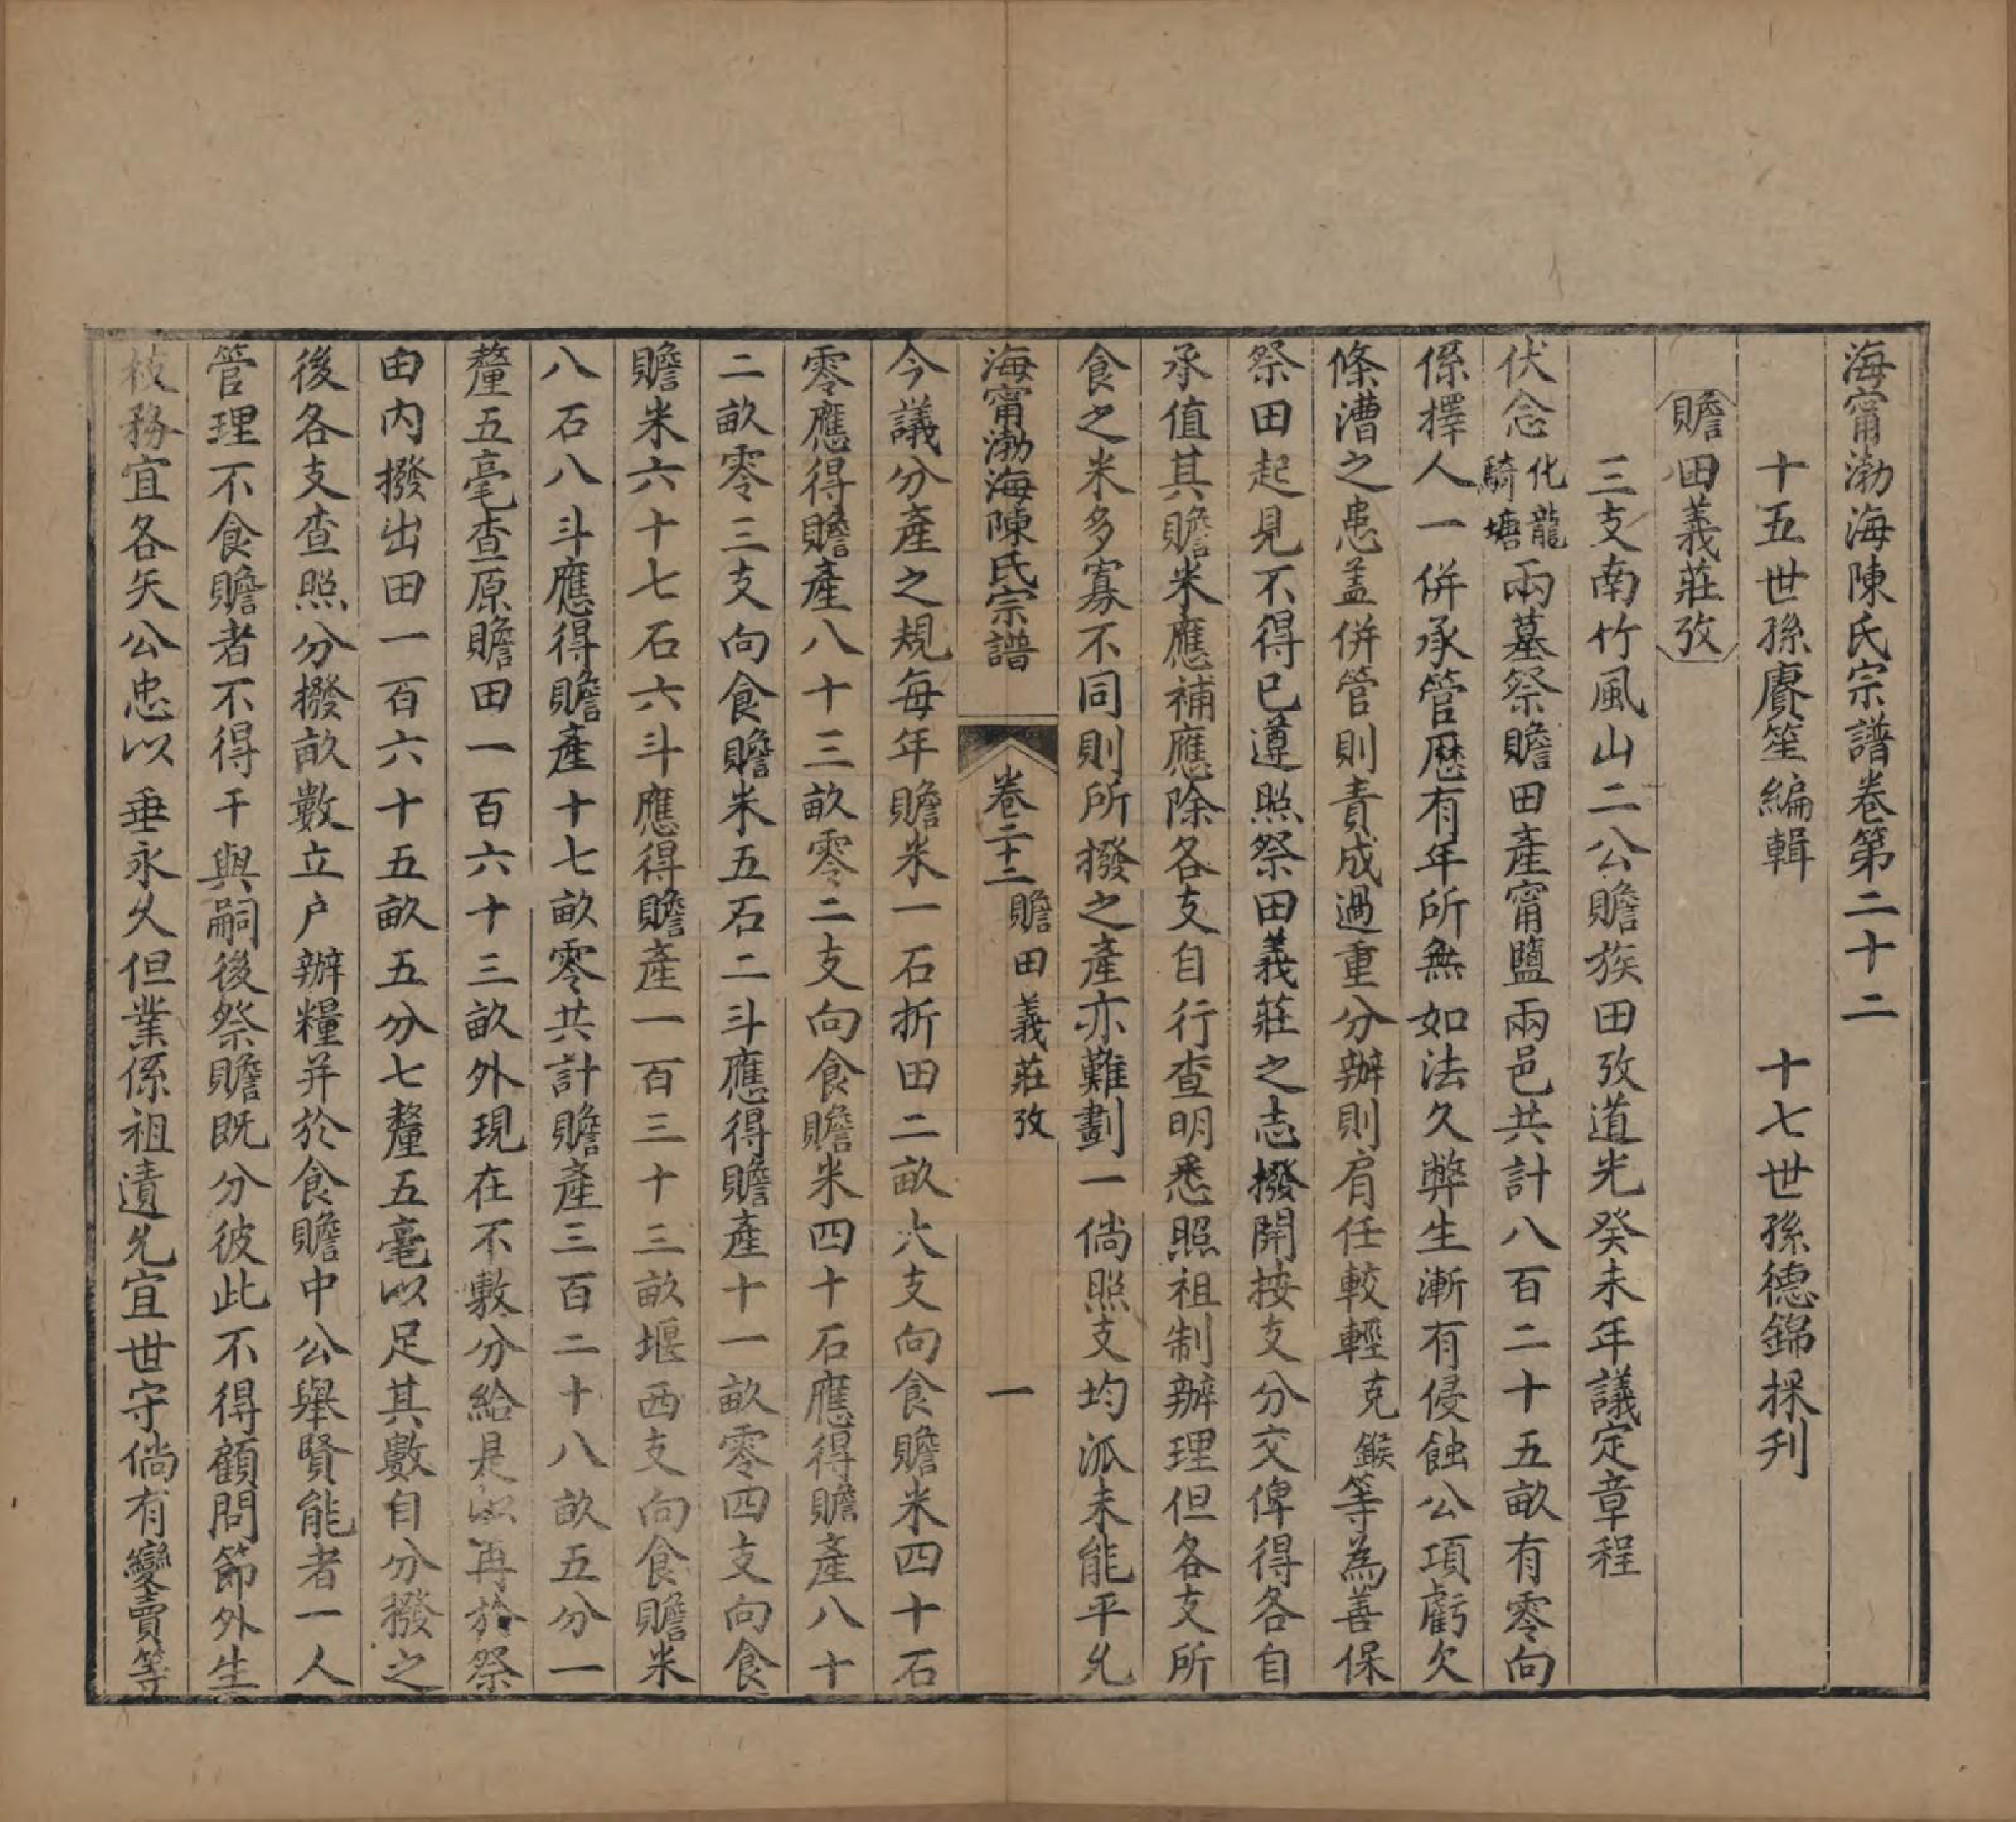 海甯渤海陳氏宗譜卷第二十二
十五世孫賡笙編輯 十七世孫德錦採刋
贍田義莊攷
三支南竹風山二公贍族田攷道光癸未年議定章程
伏念化龍騎塘兩墓祭贍田產甯鹽兩邑共計八百二十五畝有零向
係擇人一併承管歷有年所無如法久弊生漸有侵蝕公項虧欠
條漕之患盖併管則責成過重分辦則肩任較輕克鍭等為善保
祭田起見不得已遵照祭田義莊之志撥開按支分交俾得各自
承值其贍米應補應除各支自行查明悉照祖制辦理但各支所
食之米多寡不同則所撥之產亦難劃一倘照支均派未能平允
海甯渤海陳氏宗譜 卷二十二 贍田義莊攷 一
今議分產之規每年贍米一石折田二畝大支向食贍米四十石
零應得贍產八十三畝零二支向食贍米四十石應得贍產八十
二畝零三支向食贍米五石二斗應得贍產十一畝零四支向食
贍米六十七石六斗應得贍產一百三十三畝堰西支向食贍米
八石八斗應得贍產十七畝零共計贍產三百二十八畝五分一
釐五毫查原贍田一百六十三畝外現在不敷分給是以再於祭
田內撥出田一百六十五畝五分七釐五毫以足其數自分撥之
後各支查照分撥畝數立户辦糧并於食贍中公舉賢能者一人
管理不食贍者不得干與嗣後祭贍既分彼此不得顧問節外生
枝務宜各矢公忠以垂永久但業係祖遺允宜世守倘有變賣等